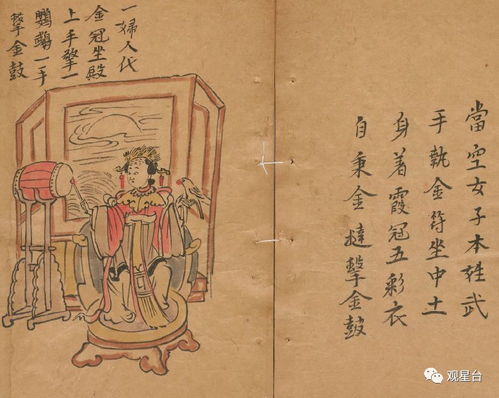 當空女子本姓武
手執金符坐中土
身著霞冠五彩衣
自秉金撻擊金鼓
一婦人代
金冠坐殿
上手擎一
鸚鵡一手
擊金鼓
观星台